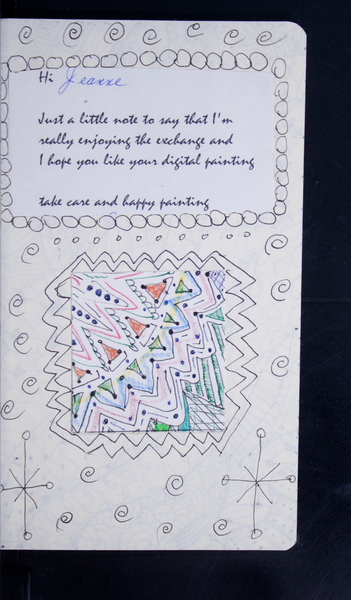 Hi Jeanne
Just a little note to say that I'm
really enjoying the exchange and
I hope you like your digital painting
take care and happy painting